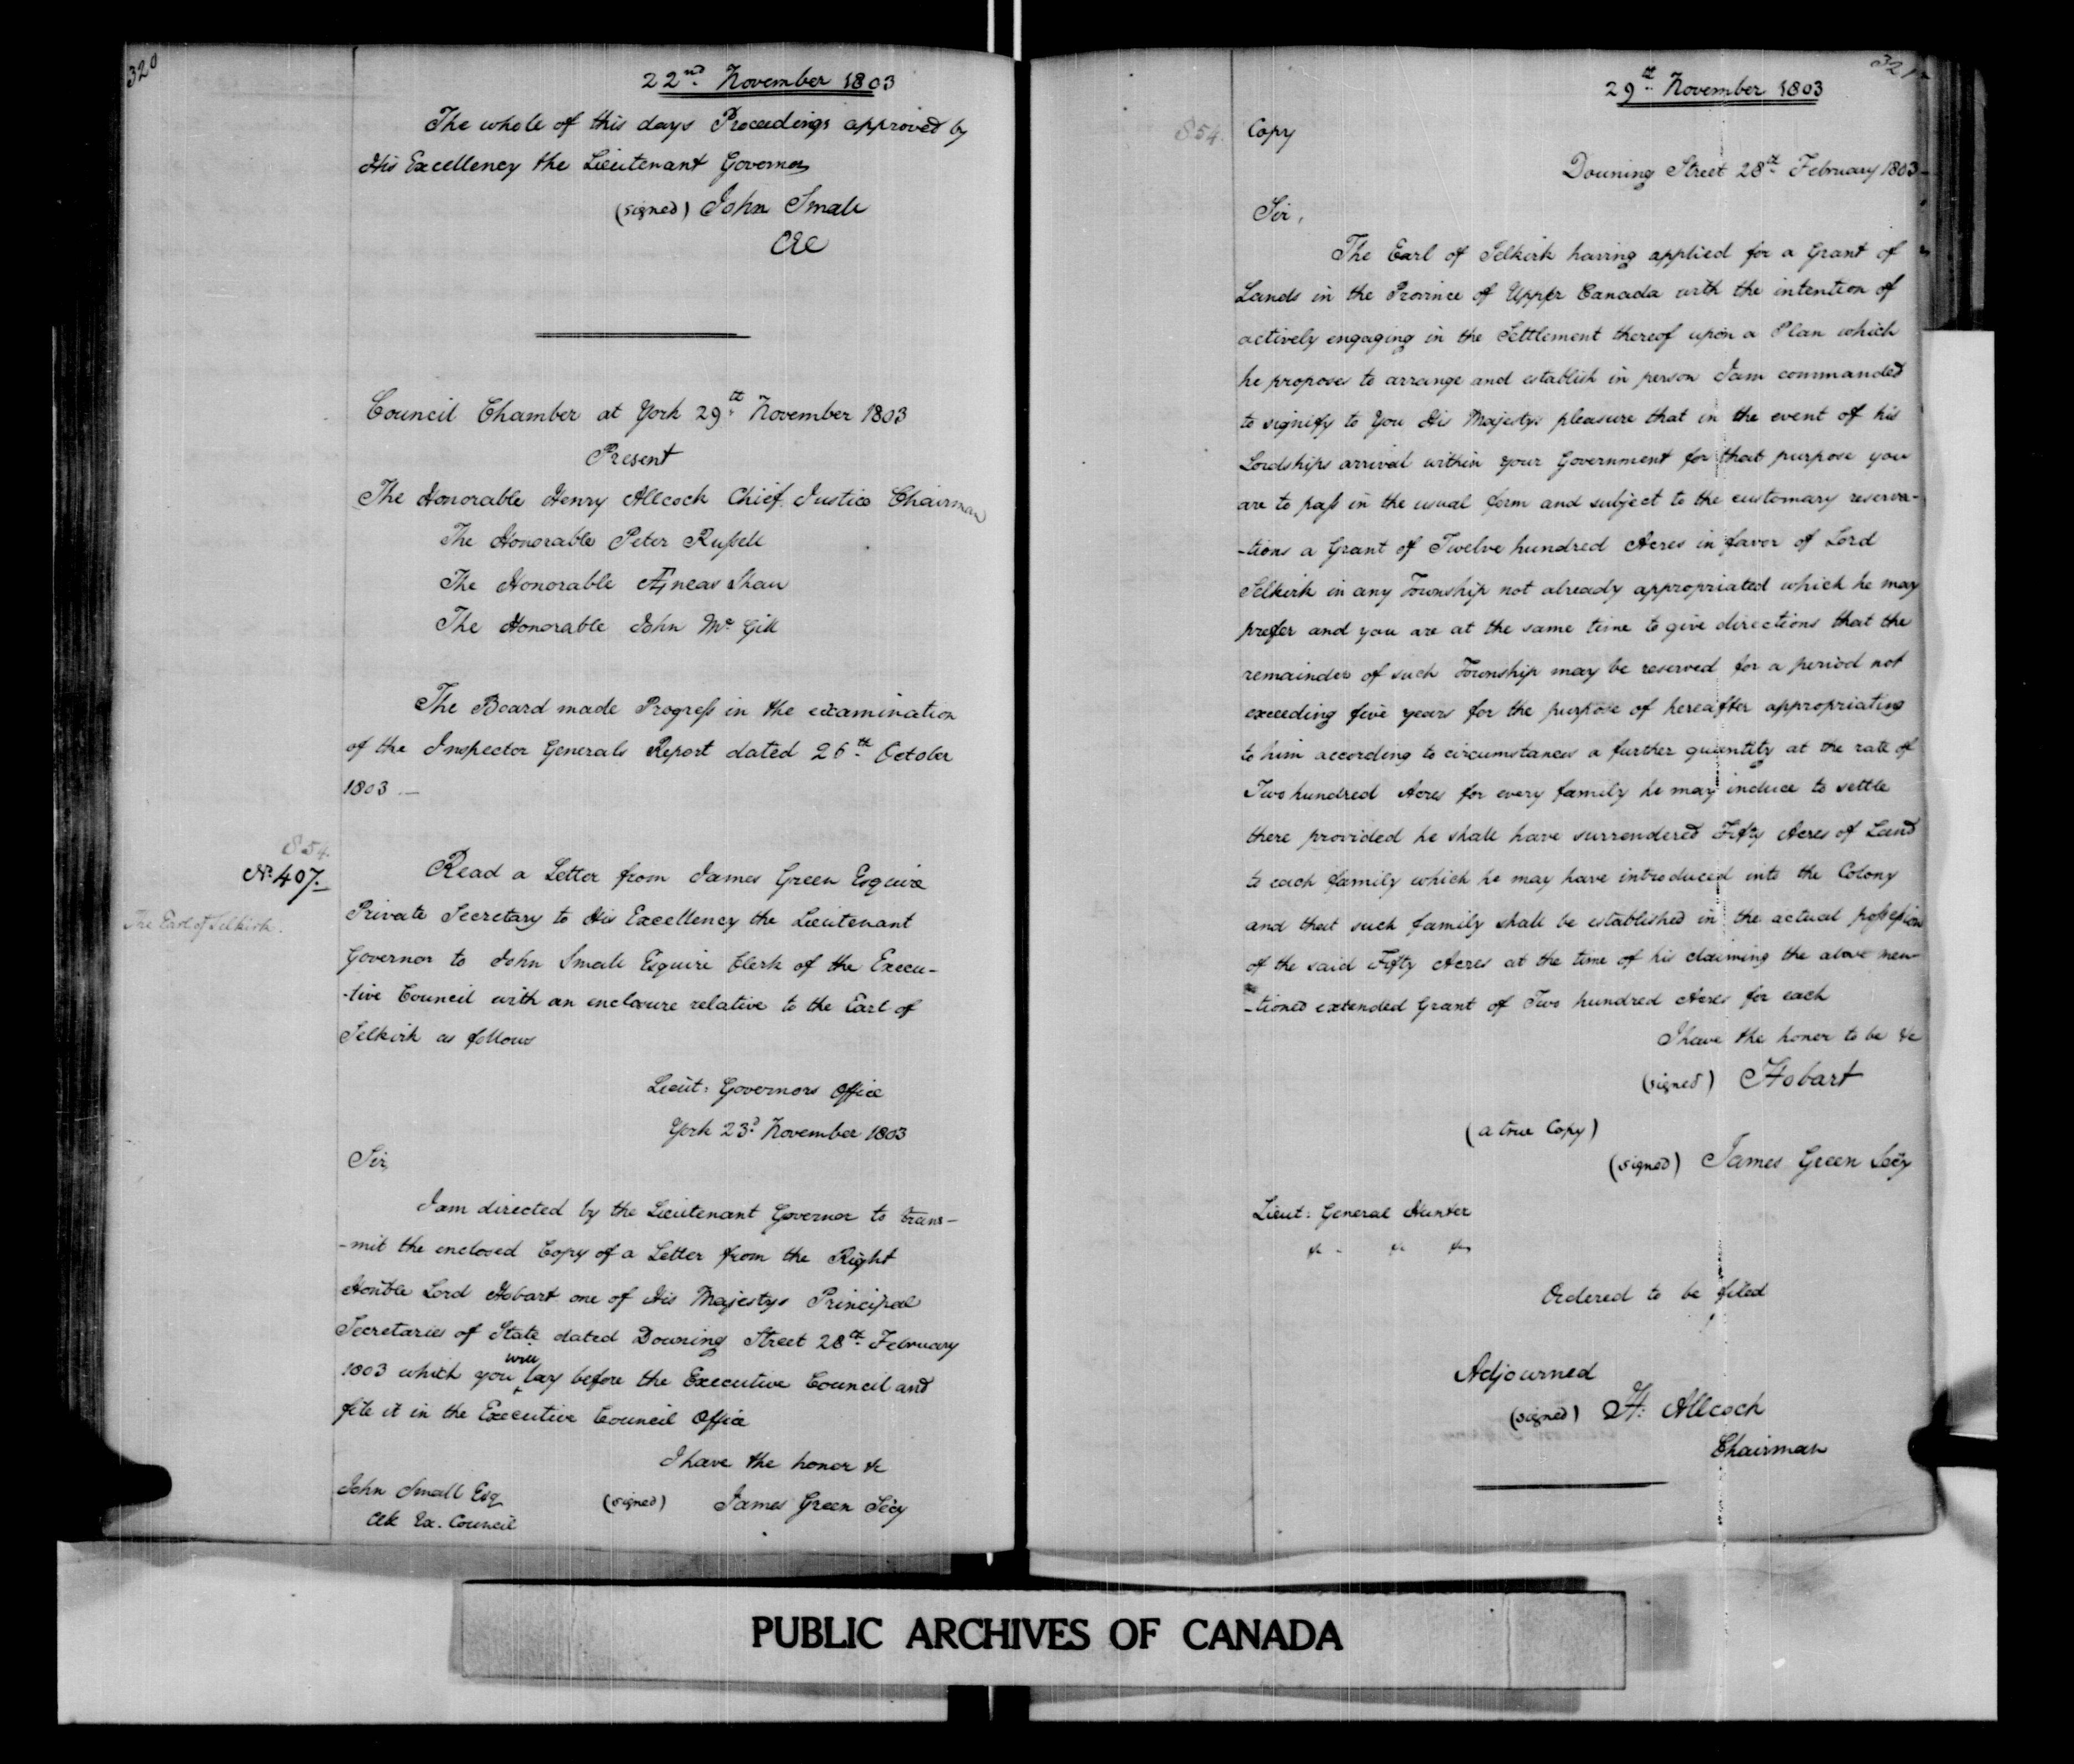 320
22nd November 1803
The whole of this days Proceedings approved by
His Excellency the Lieutenant Governor
(signed) John Small
CEC
Council Chamber at York 29th November 1803
Present
The Honorable Henry Allcock Chief Justice Chairman
The Honorable Peter Russell
The Honorable Æneas Shaw
The Honorable John McGill
The Board made Progress in the examination
of the Inspector Generals Report dated 26th October
1803 —
854.
No. 407.
The Earl of Selkirk.
Read a Letter from James Green Esquire
Private Secretary to His Excellency the Lieutenant
Governor to John Small Esquire Clerk of the Execu-
-tive Council with an enclosure relative to the Earl of
Selkirk as follows
Lieut: Governors Office
York 23d November 1803
Sir,
I am directed by the Lieutenant Governor to trans-
-mit the enclosed Copy of a Letter from the Right
Honble Lord Hobart one of His Majestys Principal
Secretaries of State dated Downing Street 28th February
1803 which you will lay before the Executive Council and
file it in the Executive Council Office
I have the honor &c
John Small Esq
(signed) James Green Secy
Clk Ex. Council
321
29th November 1803
854.
Copy
Downing Street 28th February 1803
Sir,
The Earl of Selkirk having applied for a Grant of
Lands in the Province of Upper Canada with the intention of
actively engaging in the Settlement thereof upon a Plan which
he proposes to arrange and establish in person I am commanded
to signify to You His Majestys pleasure that in the event of his
Lordships arrival within your Government for that purpose you
are to pass in the usual form and subject to the customary reserva-
-tions a Grant of Twelve hundred Acres in favor of Lord
Selkirk in any Township not already appropriated which he may
prefer and you are at the same time to give directions that the
remainder of such Township may be reserved for a period not
exceeding five years for the purpose of hereafter appropriating
to him according to circumstances a further quantity at the rate of
Two hundred Acres for every family he may induce to settle
there provided he shall have surrendered Fifty Acres of Land
to each family which he may have introduced into the Colony
and that such family shall be established in the actual possession
of the said Fifty Acres at the time of his claiming the above men-
-tioned extended Grant of Two hundred Acres for each
I have the honor to be &c
(signed) Hobart
(a true Copy)
(signed) James Green Secy
Lieut: General Hunter
&c - &c &c
Ordered to be filed
Adjourned
(signed) H: Allcock
Chairman
PUBLIC ARCHIVES OF CANADA